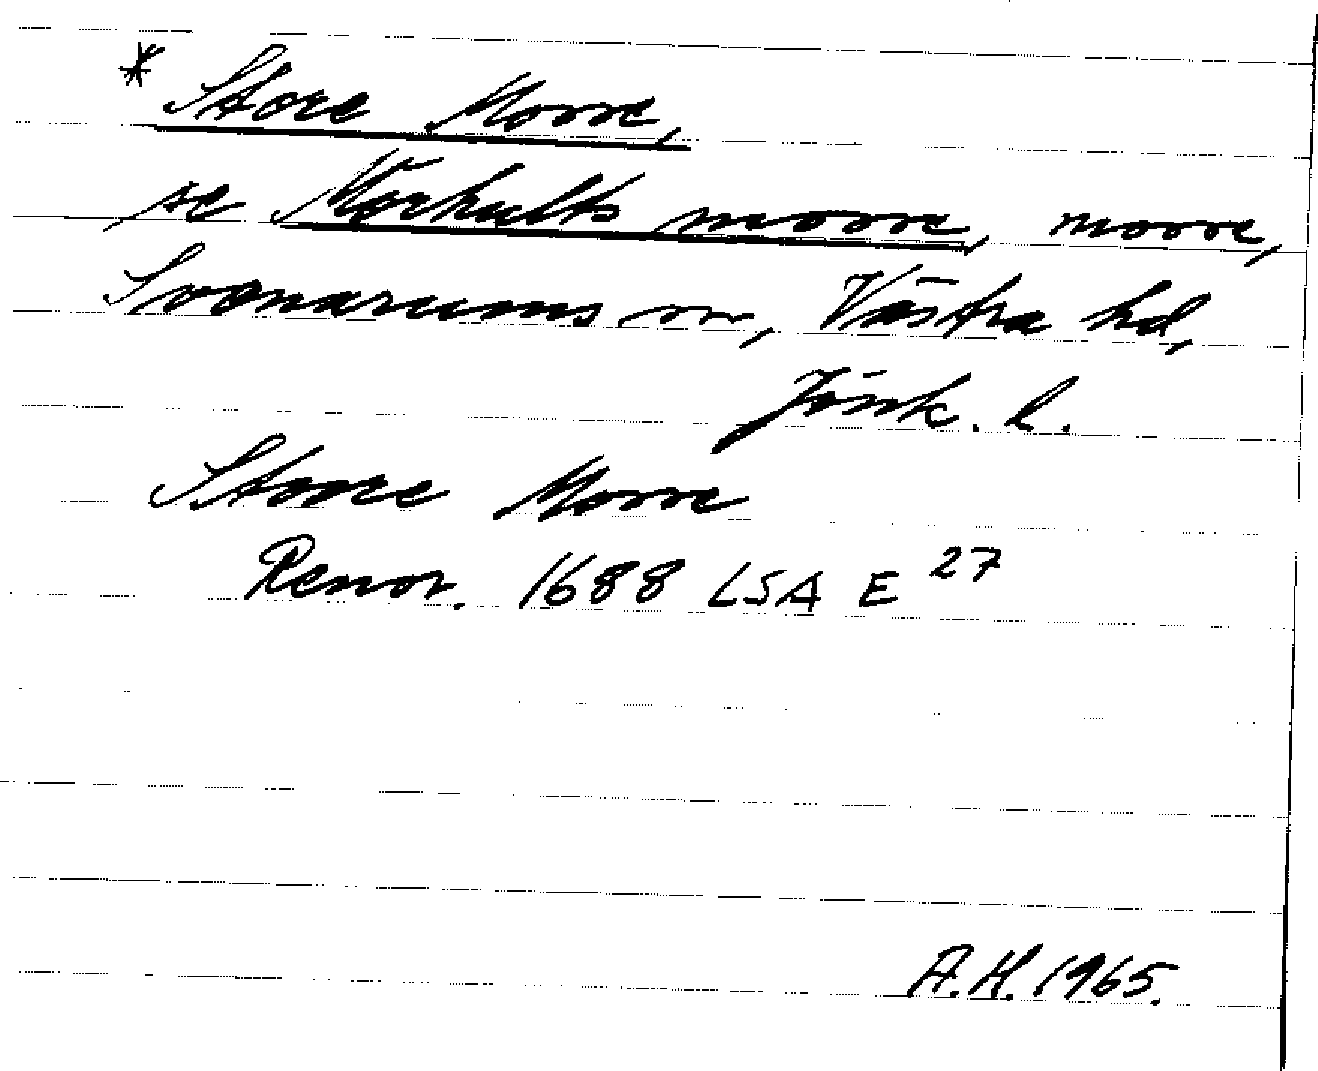 * Store Mosse,
se Mörhults mosse, mosse,
Svanarums sn, Västra hd,
Jönk. l.
Stoore Mosse
Renov. 1688 LSA E 27
A.H. 1965.